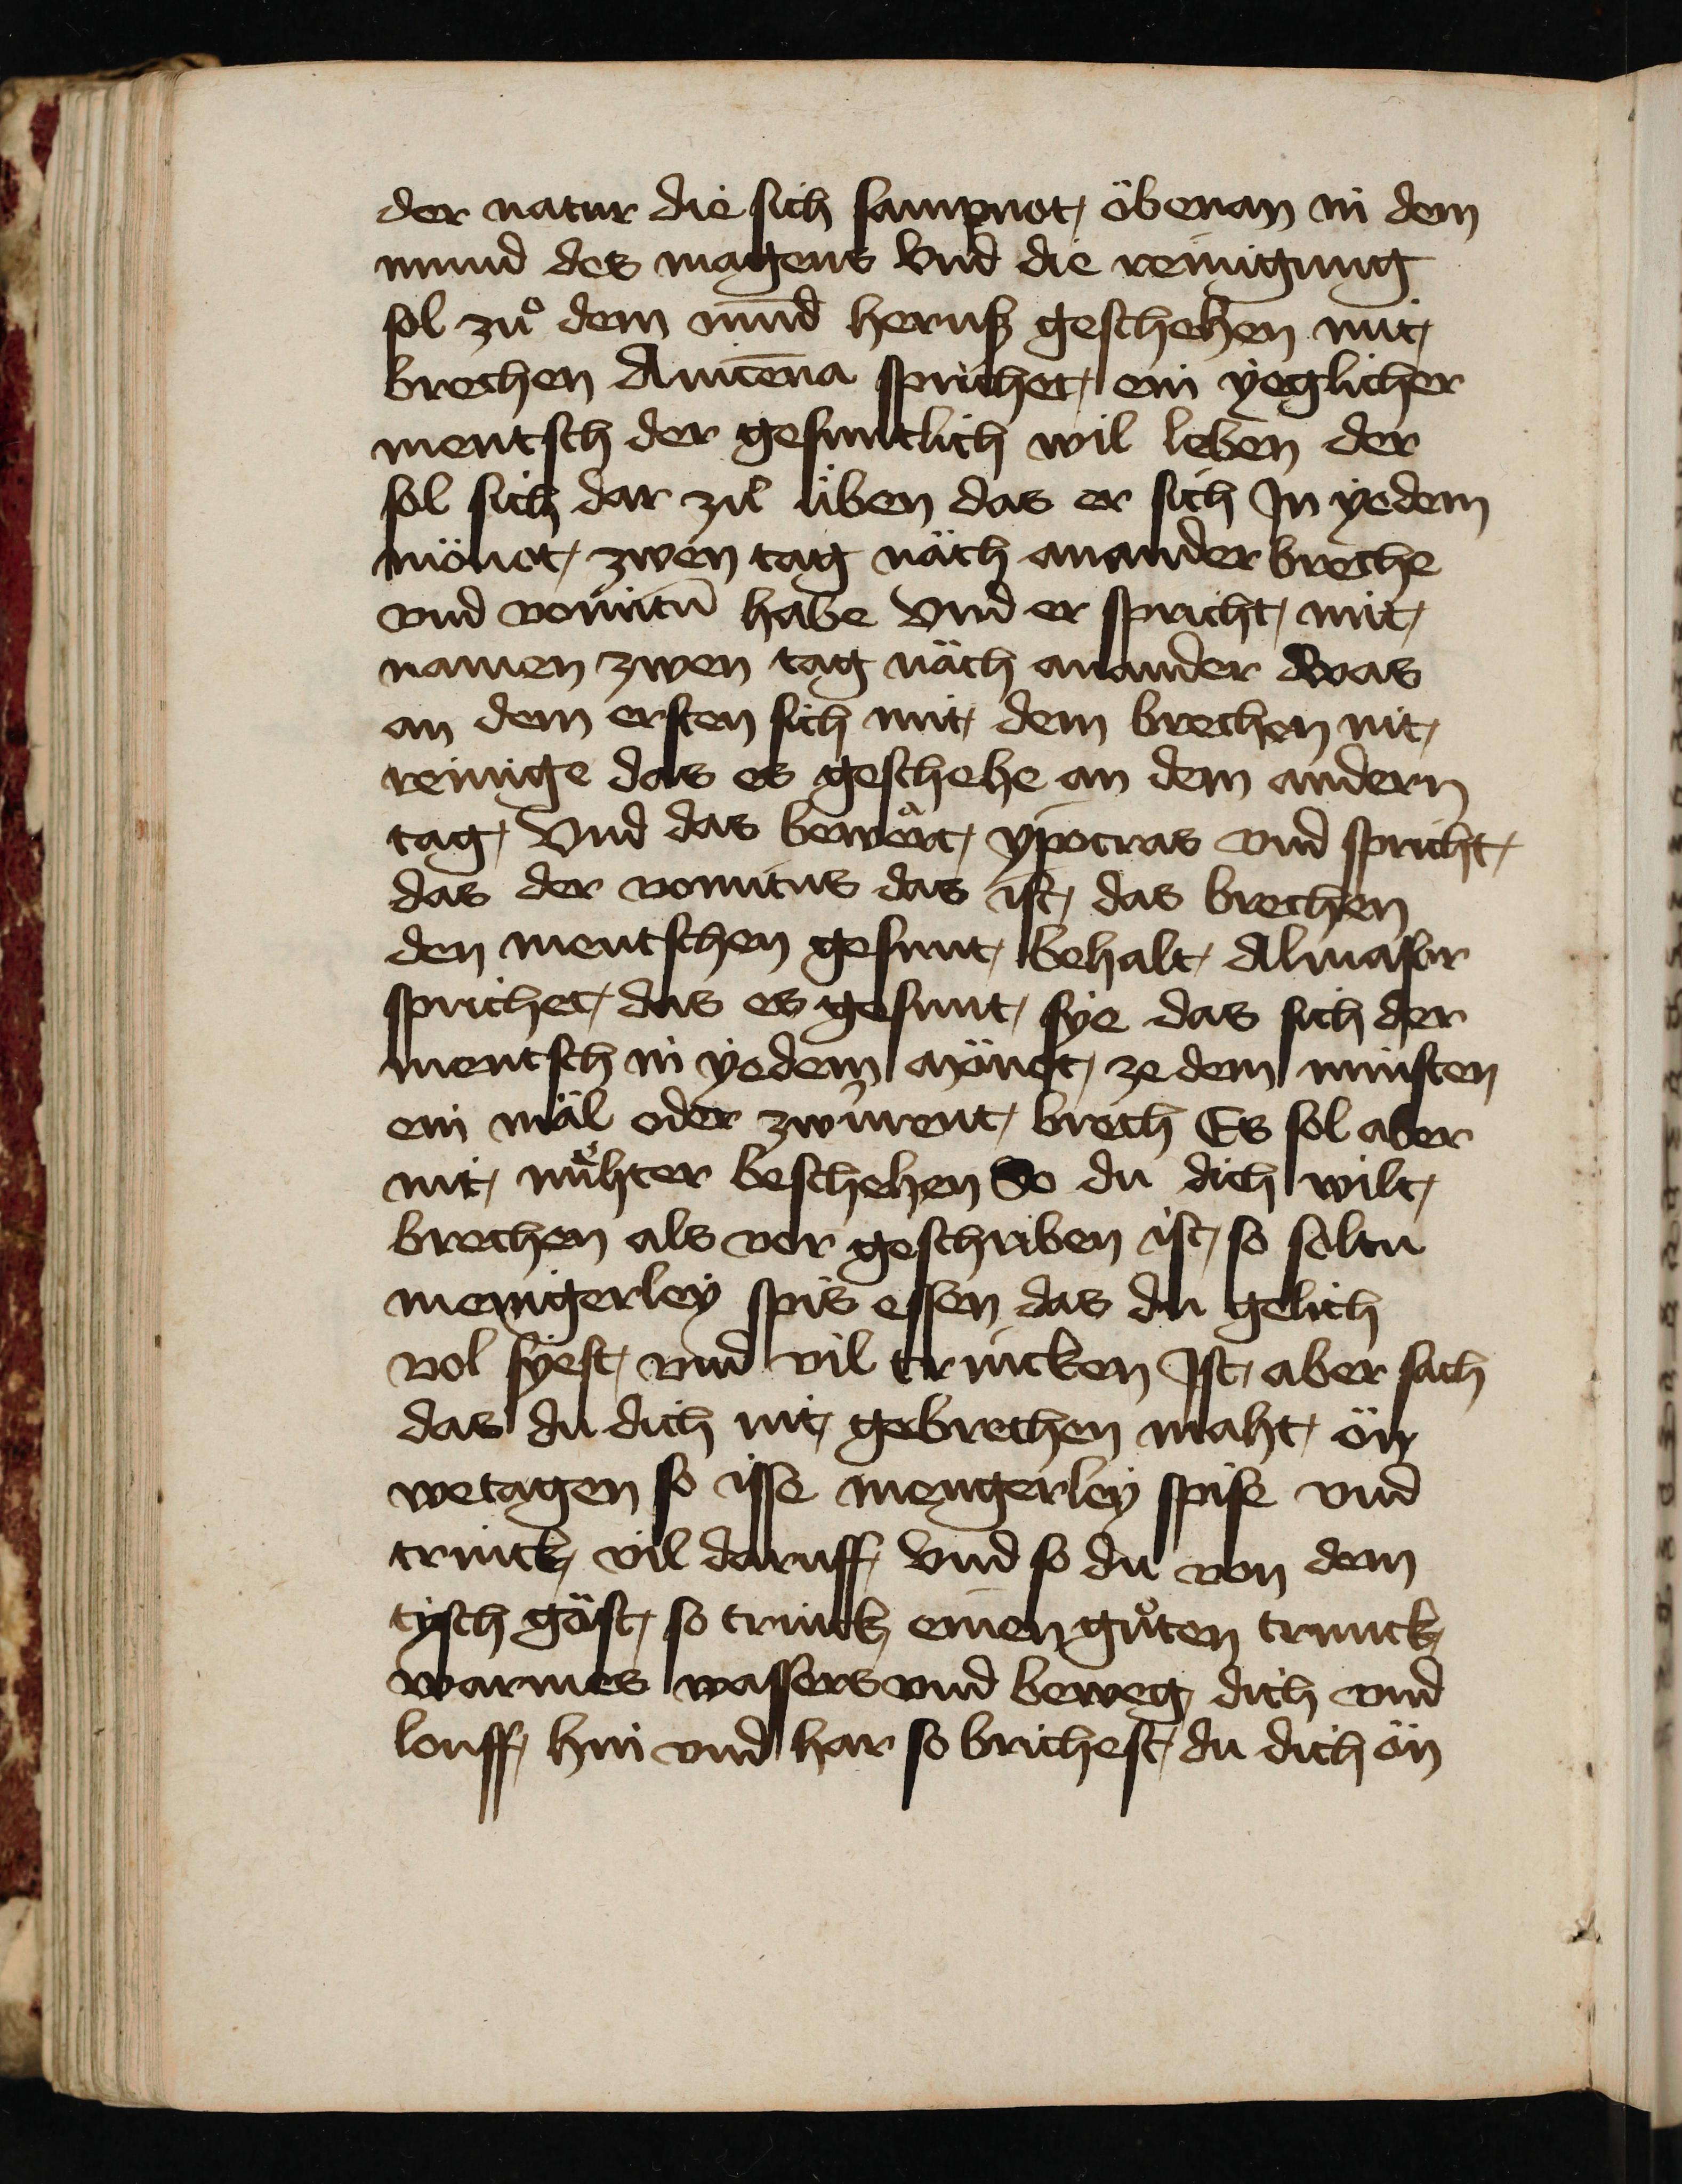 der natur die sich sampnot öbenan in dem
mund des magens Vnd die reinigung
sol zuͦ dem mūd herusz geschehen mit
brechen Auicēna sprichet ein yeglicher
mentsch der gesuntlich wil leben der
sol sich dar zuͦ üben das er sich In yedem
mönot zwen tag näch ananander breche
vnd vomitū habe Vnd er spricht mit
namen zwen tag näch anander Was
an dem ersten sich mit dem brechen nit
reinige das es geschehe an dem andern
tag Vnd das bewert ypocras vnd spricht
das der vomitus das ist das brechen
den mentschen gesunt behalt Almasor
sprichet das es gesunt sye das sich der
mentsch in yedem mönot ze dem minsten
ein mäl oder zwurent brech Es sol aber
nit nuͤhter beschehen So du dich wilt
brechen als vor geschriben ist so soltu
mengerley spis essen das du gelich
vol syest vnd vil trincken Ist aber sach
das du dich nit gebrechen maht ön
wetagen so isse mengerley spise vnd
trinck vil daruff Vnd so du von dem
tysch gäst so trinck einen guͦten trunck
warmes wassers vnd beweg dich vnd
louff hin vnd har so brichest du dich än